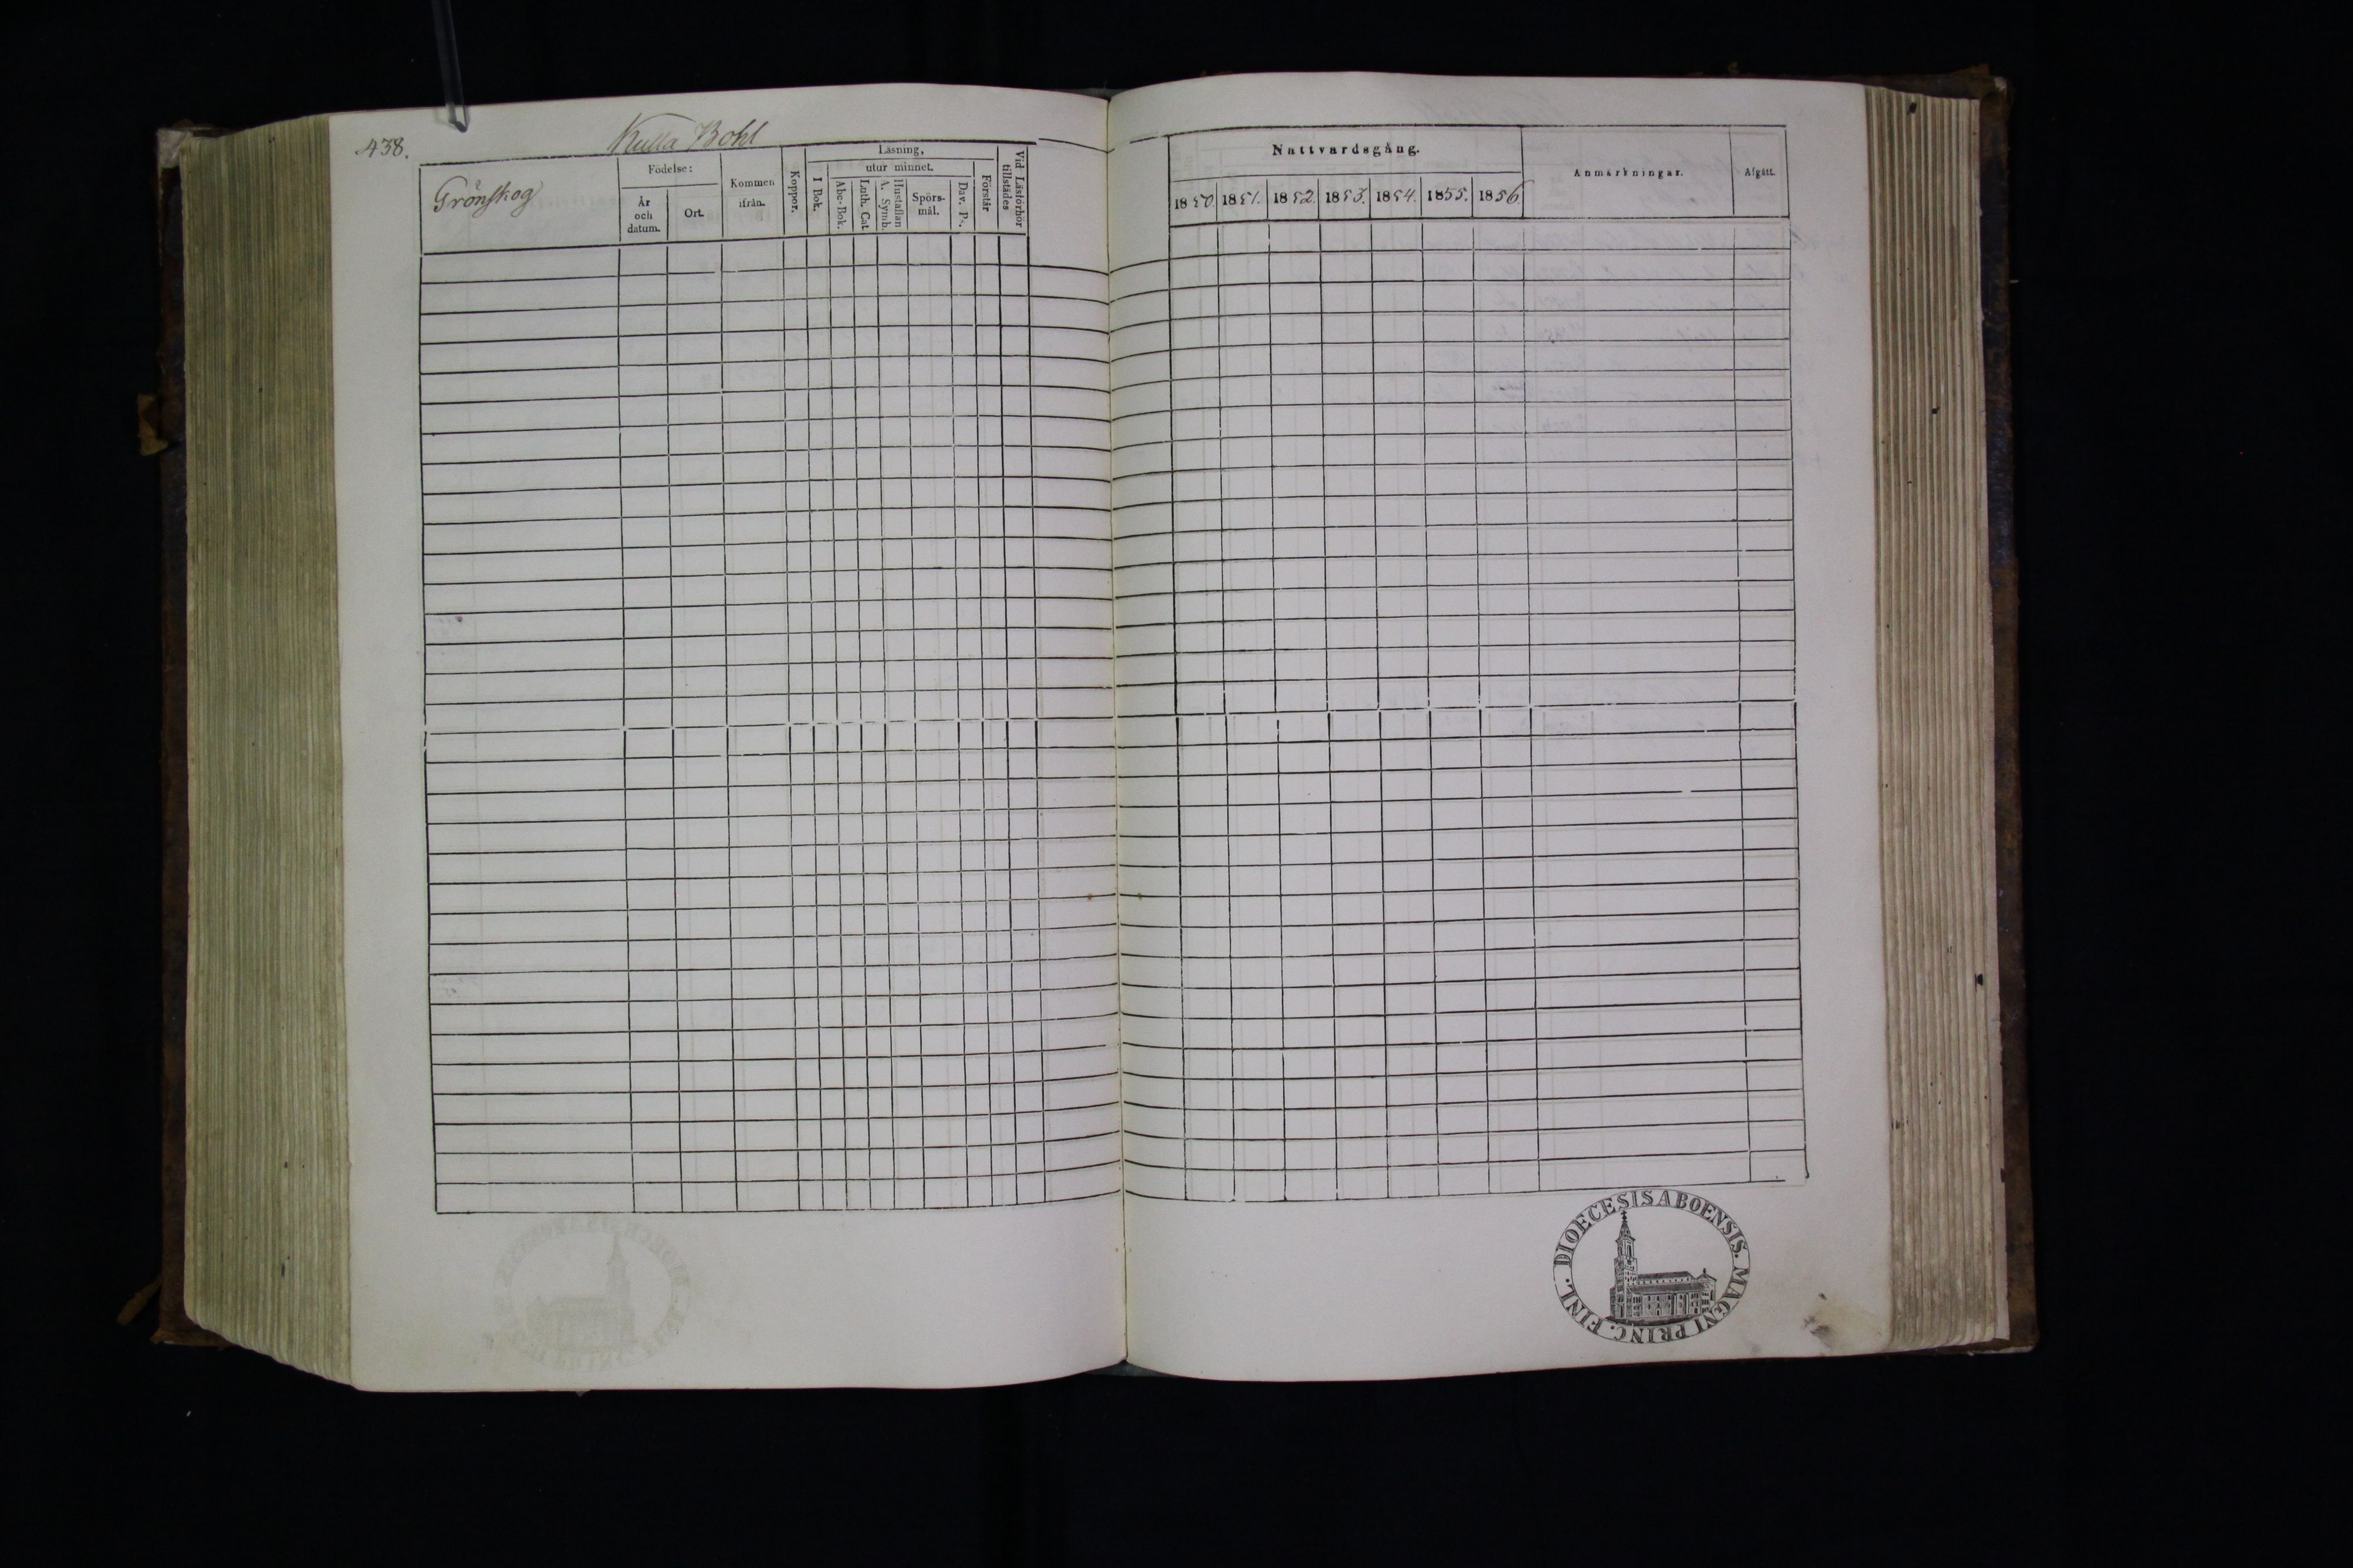 438.
Kulla Bohl
Grönskog
Födelse:
År
och
datum.
Ort.
Kommen
ifrån.
Koppor.
Läsning,
I Bok.
utur minnet.
Abc-Bok.
Luth. Cat.
Hustaflan
A. Symb.
Spörs-
mål.
Dav. Ps.
Förstår
Vid Läsförhör
tillstädes
Nattvardsgång.
1850.
1851.
1852.
1853.
1854.
1855.
1856.
Anmärkningar.
Afgått.
DIOECESIS ABOENSIS. MAGNI PRINC. FINL.